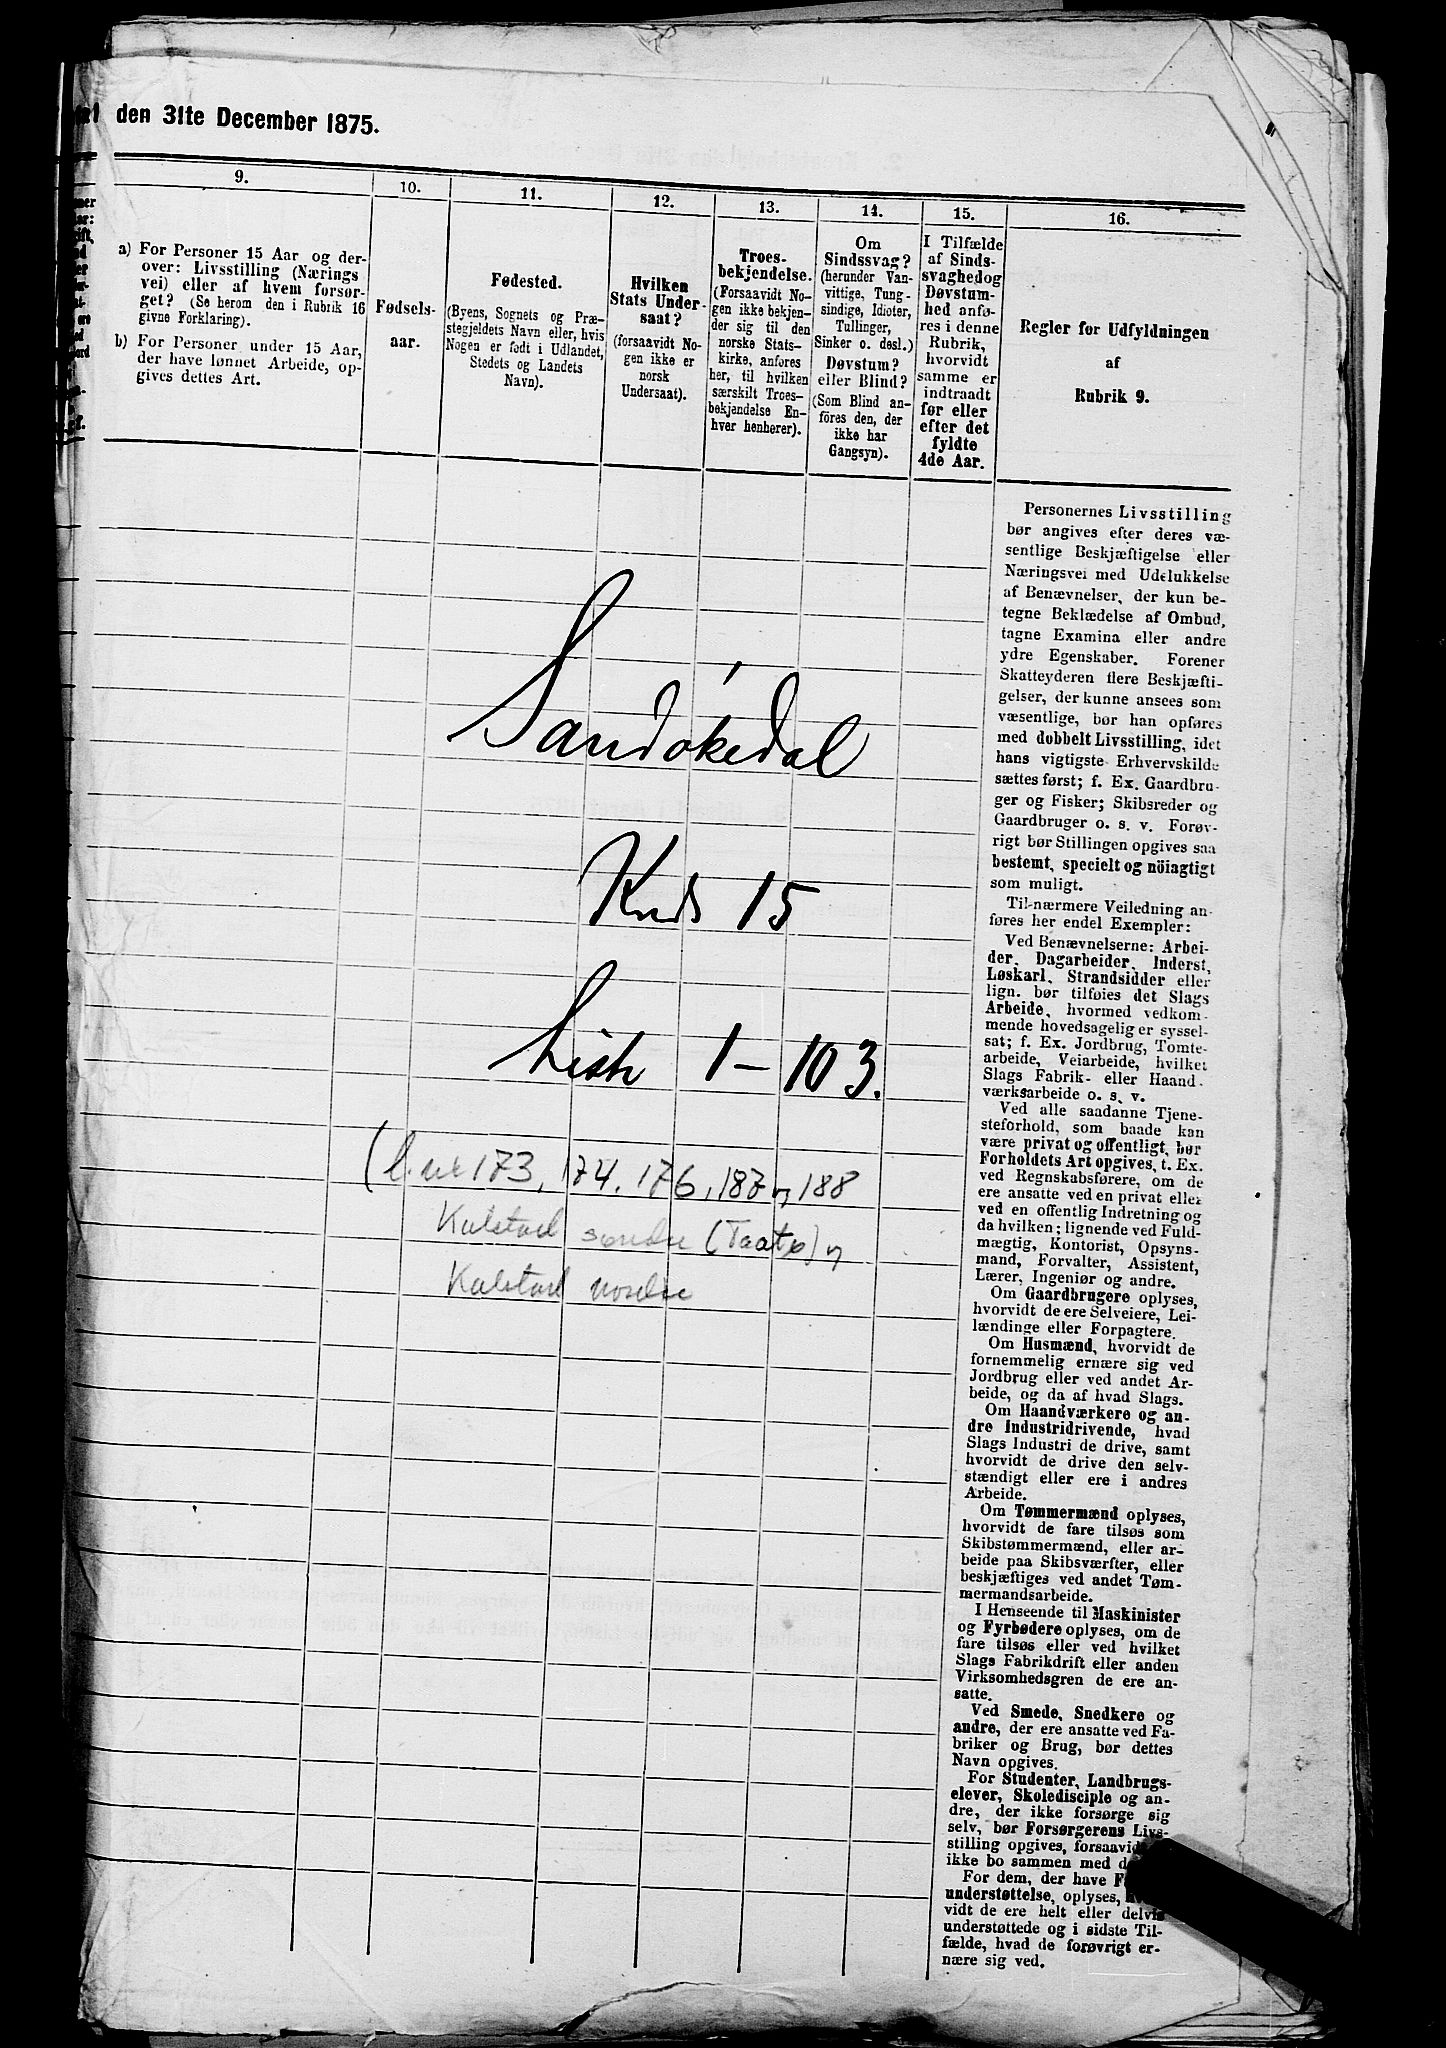 den 31te December 1875.
9.
a) For Personer 15 Aar og der-
over: Livsstilling (Nærings
vei) eller af hvem forsør-
get? (Se herom den i Rubrik 16
givne Forklaring).
b) For Personer under 15 Aar,
der have lønnet Arbeide, op-
gives dettes Art.
10.
Fødsels-
aar.
11.
Fødested.
(Byens, Sognets og Præ-
stegjeldets Navn eller, hvis
Nogen er født i Udlandet,
Stedets og Landets
Navn).
12.
Hvilken
Stats Under-
saat?
(forsaavidt No-
gen ikke er
norsk
Undersaat).
13.
Troes-
bekjendelse.
(Forsaavidt No-
gen ikke bekjen-
der sig til den
norske Stats-
kirke, anføres
her, til hvilken
særskilt Troes-
bekjendelse En-
hver henhører).
14.
Om
Sindssvag?
(herunder Van-
vittige, Tung-
sindige, Idioter,
Tullinger,
Sinker o. desl.)
Døvstum?
eller Blind?
(Som Blind an-
föres den, der
ikke har
Gangsyn).
15.
I Tilfælde
af Sinds-
svaghed og
Døvstum-
hed anfø-
res i denne
Rubrik,
hvorvidt
samme er
indtraadt
før eller
efter det
fyldte
4de Aar.
16.
Regler for Udfyldningen
af
Rubrik 9.
Personernes Livsstilling
bør angives efter deres væ-
sentlige Beskjæftigelse eller
Næringsvei med Udelukkelse
af Benævnelser, der kun be-
tegne Beklædelse af Ombud,
tagne Examina eller andre
ydre Egenskaber. Forener
Skatteyderen flere Beskjæfti-
gelser, der kunne ansees som
væsentlige, bør han opføres
med dobbelt Livsstilling, idet
hans vigtigste Erhvervskilde
sættes først; f. Ex. Gaardbru-
ger og Fisker; Skibsreder og
Gaardbruger o. s. v. Forøv-
rigt bør Stillingen opgives saa
bestemt, specielt og nöiagtigt
som muligt.
Til nærmere Veiledning an-
føres her endel Exempler:
Ved Benævnelserne: Arbei-
der, Dagarbeider, Inderst,
Løskarl, Strandsidder eller
lign. bør tilføies det Slags
Arbeide, hvormed vedkom-
mende hovedsagelig er syssel-
sat; f. Ex. Jordbrug, Tomte-
arbeide, Veiarbeide, hvilket
Slags Fabrik- eller Haand-
værksarbeide o. s. v.
Ved alle saadanne Tjene-
steforhold, som baade kan
være privat og offentligt, bør
Forholdets Art opgives, t. Ex.
ved Regnskabsførere, om de
ere ansatte ved en privat eller
ved en offentlig Indretning og
da hvilken; lignende ved Fuld-
mægtig, Kontorist, Opsyns-
mand, Forvalter, Assistent,
Lærer, Ingeniør og andre.
Om Gaardbrugere oplyses,
hvorvidt de ere Selveiere, Lei-
lændinge eller Forpagtere.
Om Husmænd, hvorvidt de
fornemmelig ernære sig ved
Jordbrug eller ved andet Ar-
beide, og da af hvad Slags.
Om Haandværkere og an-
dre Industridrivende, hvad
Slags Industri de drive, samt
hvorvidt de drive den selv-
stændigt eller ere i andres
Arbeide.
Om Tømmermænd oplyses,
hvorvidt de fare tilsøs som
Skibstømmermænd, eller ar-
beide paa Skibsværfter, eller
beskjæftiges ved andet Tøm-
mermandsarbeide.
I Henseende til Maskinister
og Fyrbødere oplyses, om de
fare tilsøs eller ved hvilket
Slags Fabrikdrift eller anden
Virksomhedsgren de ere an-
satte.
Ved Smede, Snedkere og
andre, der ere ansatte ved Fa-
briker og Brug, bør dettes
Navn opgives.
For Studenter, Landbrugs-
elever, Skoledisciple og an-
dre, der ikke forsørge sig
selv, bør Forsørgerens Livs-
stilling opgives, forsaavidt
ikke bo sammen med
For dem, der have
understøttelse, oplyses,
vidt de ere helt eller delvis
understøttede og i sidste Til-
fælde, hvad de forøvrigt er-
nære sig ved.
Sandøkedal
Kreds 15
Liste 1-103.
(l. nr 173, 174, 176, 187 og 188
Kalstad søndre (Taatø) og
Kalstad nordre